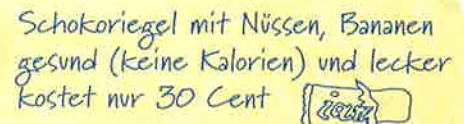 Schokoriegel mit Nüssen, Bananen
gesund (keine Kalorien) und lecker
kostet nur 30 Cent